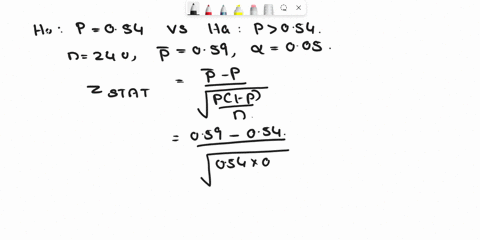 Ho: P = 0.54 vs Ha: P > 0.54.
n = 240, p̅ = 0.59, α = 0.05.
Z STAT = p̅ - P / √(P(1-P)/n)
= 0.59 - 0.54. / √(0.54 × 0